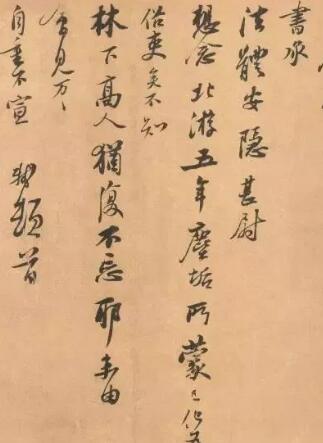 書承
法體安隱甚尉
想念北游五年塵垢所蒙已化
俗吏矣不知
林下高人猶復不忘耶未由
會見万〻
自重不宣 軾頓首